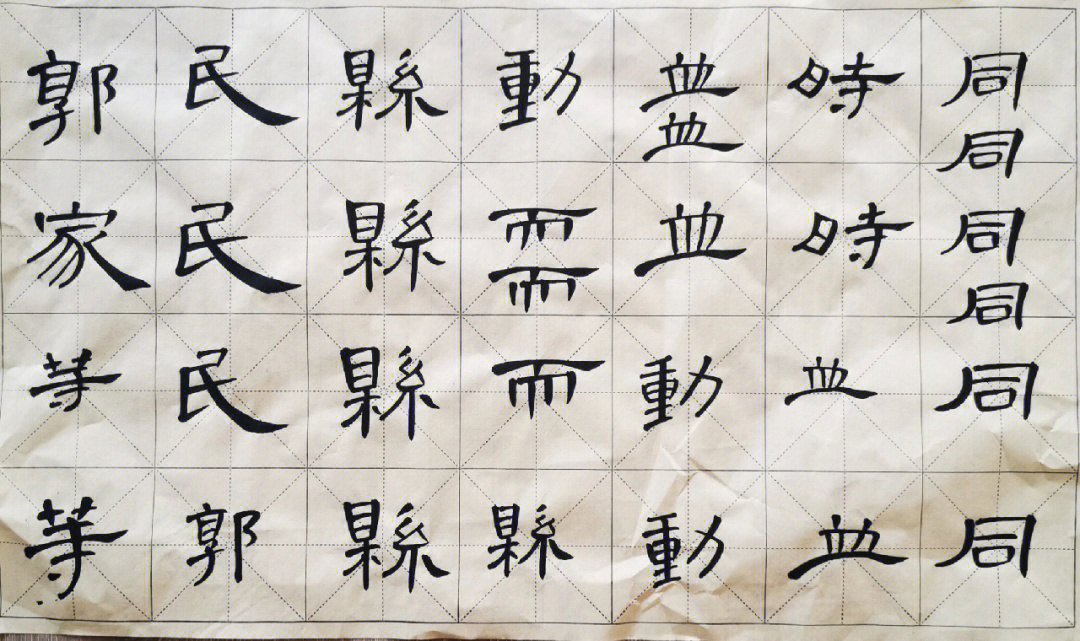 同同同同同同
時時並並
並並並動動
動而而而縣
縣縣縣縣
民民民郭
郭家等等